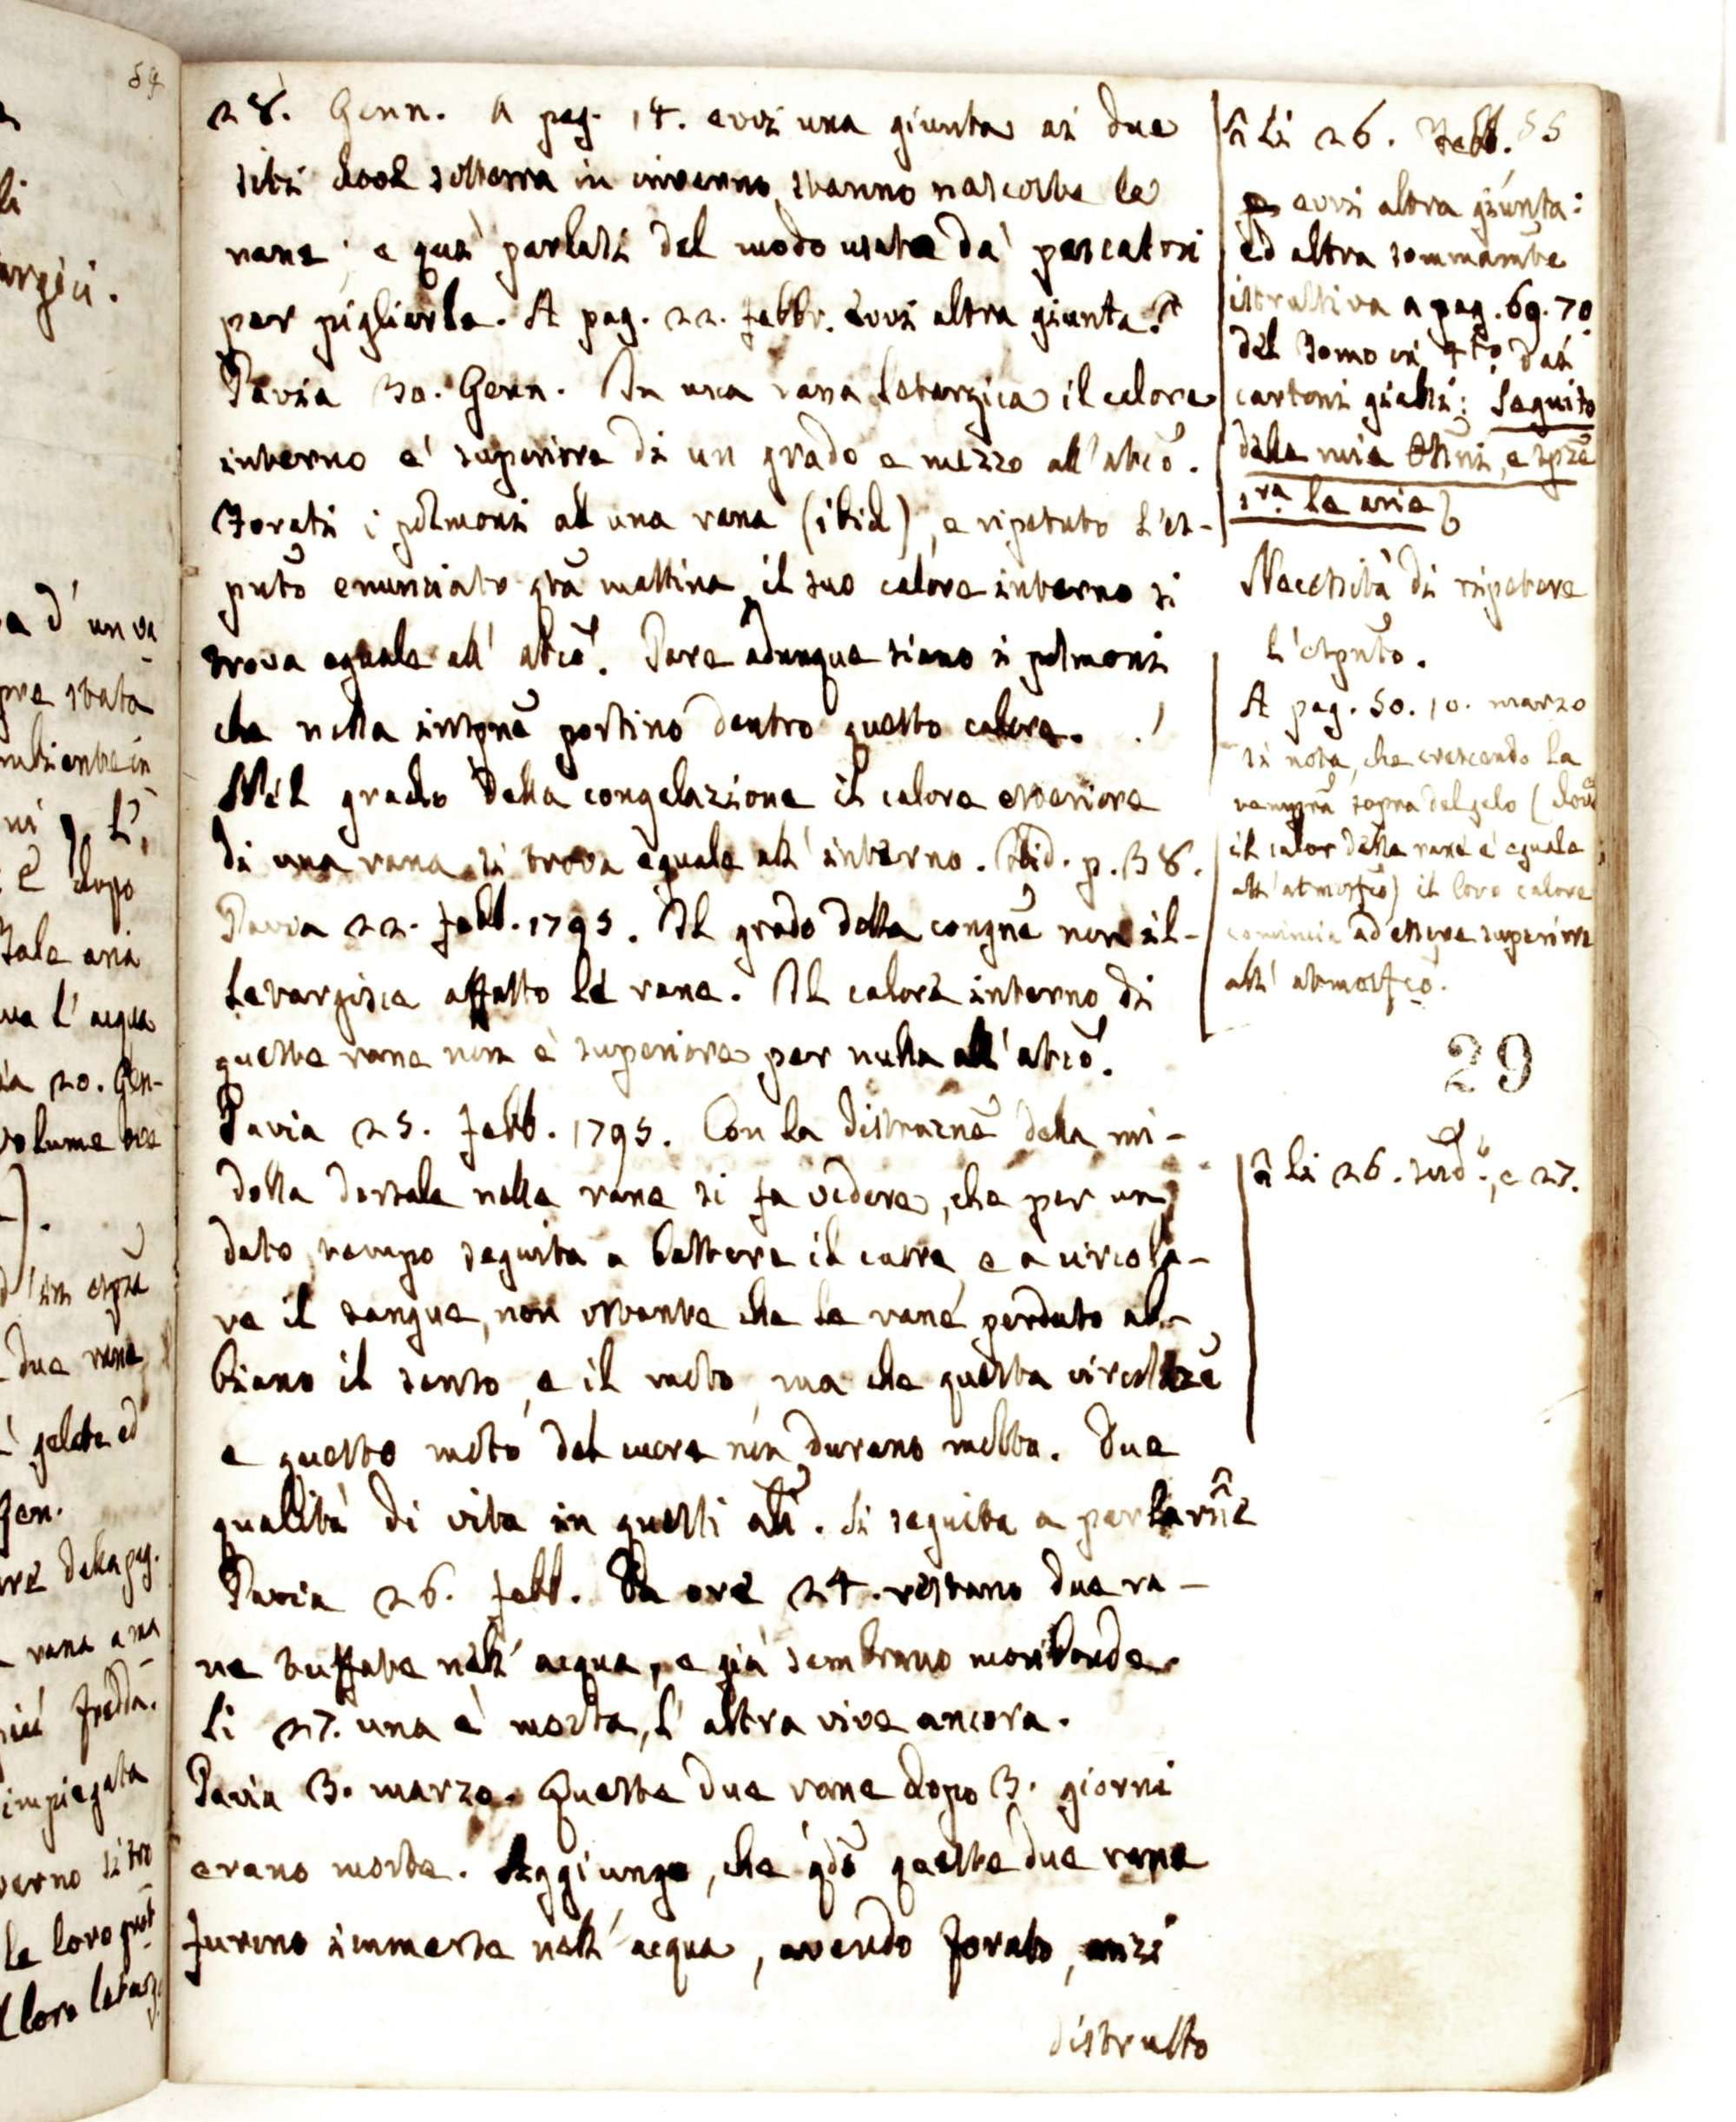 28. Genn. A pag. 14. evvi una giunta ai due
siti dove sotterra in inverno stanno nascoste le
rane; e qui parlasi del modo usato da' pescatori
per pigliarle. A pag. 22. Febbr. evvi altra giunta.
Pavia 30. Genn. In una rana letargica il calore
interno e' superiore di un grado e mezzo all'atmco.
Forati i polmoni ad una rana (ibid), e ripetuto l'es-
pnto enunciato qta mattina, il suo calore interno si
trova eguale all' atmco. Pare adunque siano i polmoni
che nella inspne portino dentro questo calore.
Nel grado della congelazione il calore esteriore
di una rana si trova eguale all' interno. Ibid. p. 38.
Pavia 22. Febb. 1795. Il grado della congne non il-
letargisce affatto le rane. Il calore interno di
queste rane non è superiore per nulla all' atmco.
Pavia 25. Febb. 1795. Con la distruzne della mi-
dolla dorsale nelle rane si fa vedere, che per un
dato tempo seguita a battere il cuore, e a circola-
re il sangue, non ostante che le rane perduto ab-
biano il senso, e il moto, ma che questa circolazne
e questo moto del cuore non durano molto. Due
qualità di vita in questi ali. Si seguita a parlarne
Pavia 26. Febb. Da ore 24. restano due ra-
ne tuffate nell' acqua, e già sembrano moribonde.
Li 27. una è morta, l' altra vive ancora.
Pavia 3. marzo. Queste due rane dopo 3. giorni
erano morte. Aggiungo, che qdo queste due rane
furono immerse nell' acqua, avendo forato, anzi
distrutto
55
Li 26. Febb.
evvi altra giunta:
ed altra sommamte
istruttiva a pag. 69. 70
del Tomo in 4to. dai
cartoni gialli: Seguito
delle mie
1ra. le arie
Necessità di ripetere
l'espnto.
A pag. 50. 10. marzo
si nota, che crescendo la
sopra del gelo (dove
il calor delle rane è eguale
all' atmosfco) il loro calore
comincia ad essere superiore
all' atmosfco.
29
li 26. sudo., e 27.
54
li
argici.
a d' un va
pre stata
mbiente in
ni, L'
e dopo
Tale ani
ua l' acqua
ia 20. Gen-
volume ove
due rane
gelate ed
Gen.
re della pag.
rana ama
più fredda.
impiegata
verno si tro
le loro
loro letarg